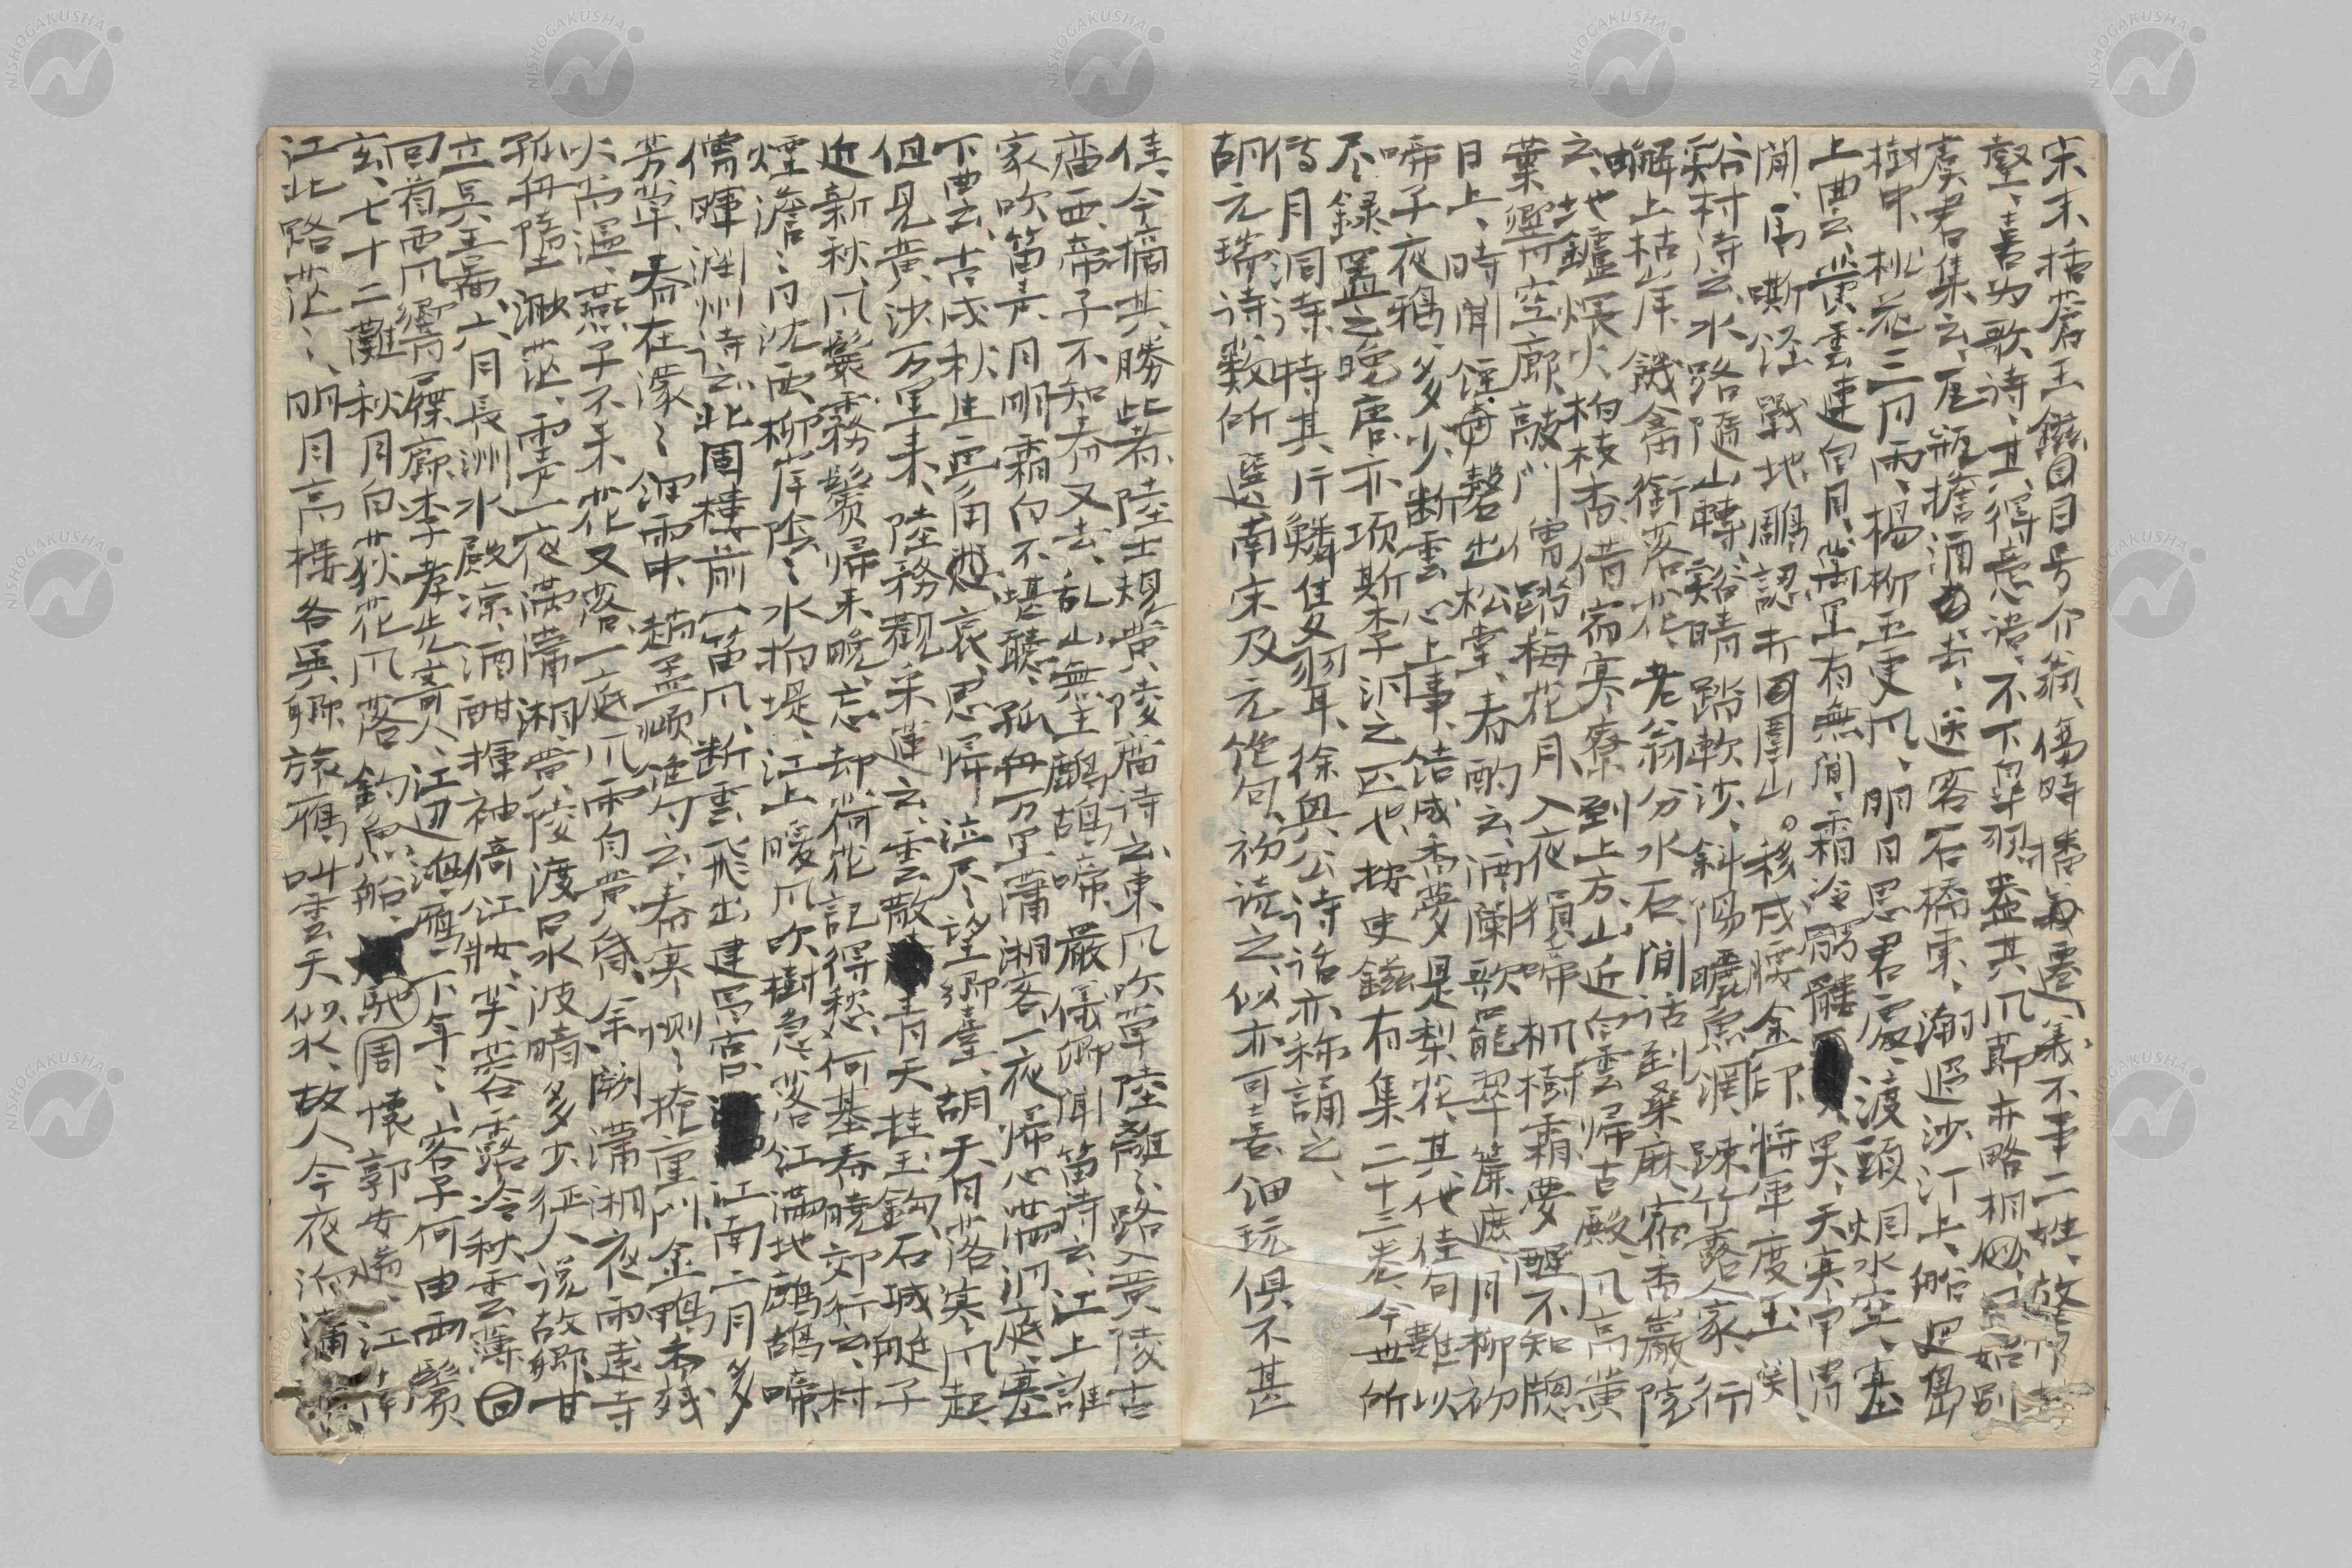 宋末栝蒼王鎡、字号介翁、傷時播遷、義不事二姓、放情
壑、喜为歌詩、其得意語、不下皐羽、盍共風節亦略相似、
虞君集云、瓦瓶擔酒去、送客石橋東、潮退沙汀上、船迴島
樹中、桃花三月雨、楊柳五更風、明日思君處、渡頭烟水空、塞
上曲云、黄雲連白月、万里有無間、霜冷髑髏哭、天寒甲冑
閒、馬嘶経戰地、鵰認打囲山。移戍腰金印、将軍度玉関、
谿村詩云、水路随山轉、谿晴踏軟沙、斜陽曬魚網、踈竹露人家、行
蟹上枯岸、饑禽銜落花、老翁分水石、閒話到桑麻、宿香巌院
云、地鑪煨火柏枝香、借宿寒寮到上方、山近白雲帰古殿、風高黄
葉響空廊、敲門僧踏梅花月、入夜猿啼楓樹霜、夢醒不知牕
日上、時聞経磬出松堂、春酌云、酒闌歌罷翠簾遮、月柳初
啼子夜鴉、多少断雲心上事、結成香夢是梨花、其他佳句難以
尽録、置之晩唐、亦項斯李洞之匹也、按史鎡有集二十三巻、今世所
傳、月洞詩、特其片鱗隻羽耳、徐興公詩話亦称誦之、
胡元瑞詩数所選南宋及元絶句、初読之、似亦可喜、細玩俱不甚
佳、今摘其勝此者、陸士規黄陵廟詩云、東風吹草陸離々、路入黄陵古
廟西、帝子不知春又去、乱山無主鷓鴣啼、嚴儀卿聞笛詩云、江上誰
家吹笛声、月明霜白不堪聴、孤舟万里瀟湘客、一夜帰心満洞庭、塞
下曲云、古戍秋生画角哀、思帰泣尽望郷臺、胡天月落寒風起
但見黄沙万里来、陸務觀采蓮云、雲散青天挂玉鈎、石城艇子
近新秋、風鬟霧鬢帰来晩、忘却荷花記得愁、何基春晩郊行云、村
煙澹々日沈西、柳岸陰々水拍堤、江上暖風吹樹急、落江満地鷓鴣啼、
僧暉潤州詩云、北固樓前一笛風、断雲飛出建昌宮、江南二月多
芳草、春在濛々細雨中、趙孟頫絶句云、春寒惻々掩重門、金鴨香残
火尚温、燕子不来花又落、一庭風雨自黄昏、余闕瀟湘夜雨、遠寺
孤舟墮渺茫、雲一夜満瀟湘、黄陵渡口水波晴、多少征人説故郷、甘
立呉王嵩、六月長洲水殿凉、酒酣揮袖倚江妝、芙蓉露冷秋雲薄、回
回首西風響屧廊、李孝先寄人、江辺過雁下年々、客子何由両鬢
玄、七十二灘秋月白、荻花風落釣魚船、周馳懐郭安端、江南
江北路茫々、明月高樓各異郷、旅雁叫雲天似水、故人今夜泊瀟湘